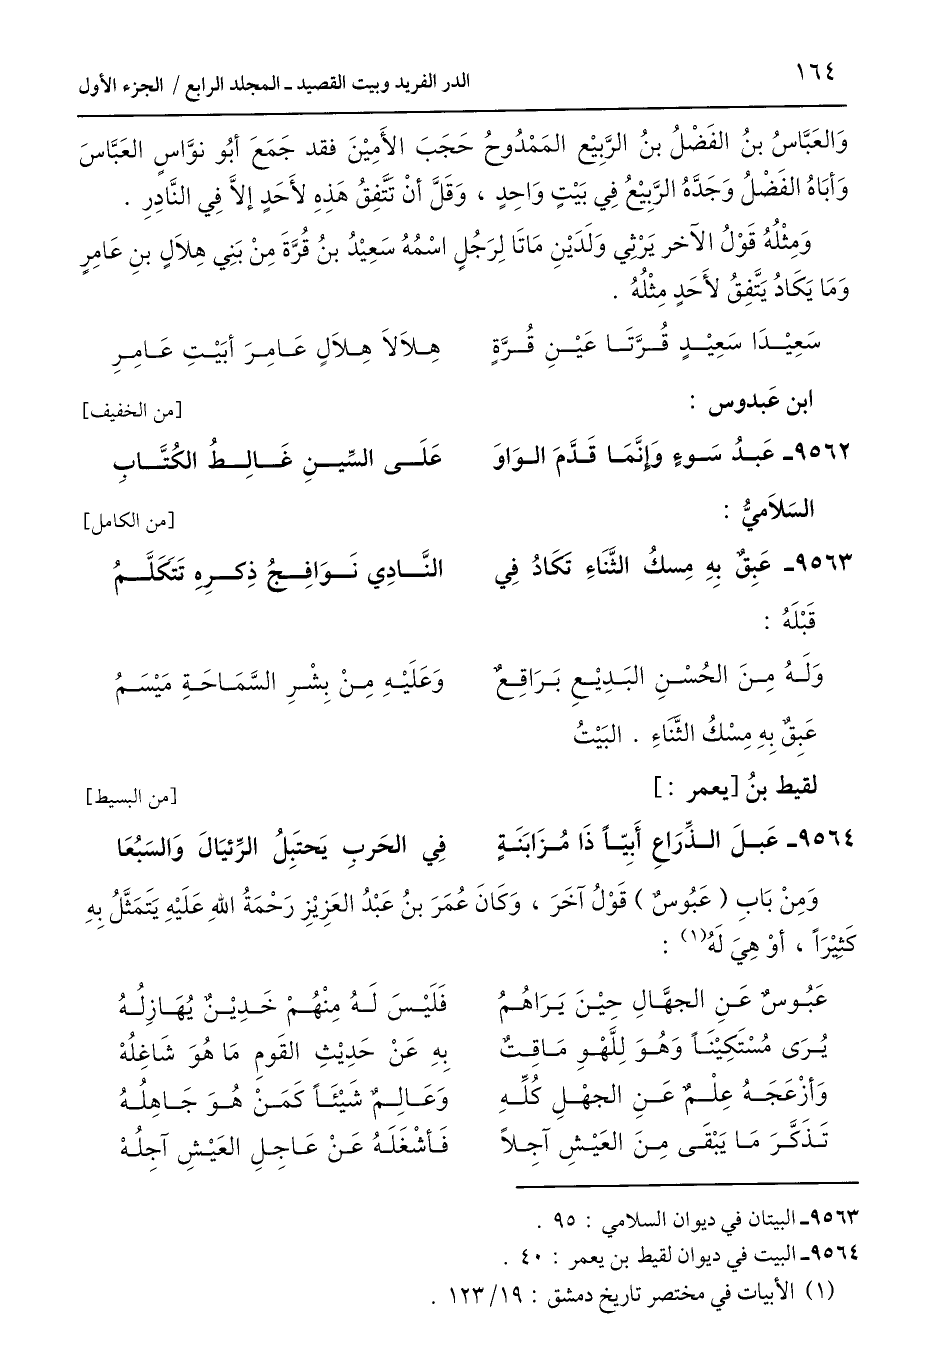 ١٦٤
الدر الفريد وبيت القصيد ـ المجلد الرابع / الجزء الأول
وَالعَبَّاسُ بنُ الفَضْلُ بنُ الرَّبِيْعِ المَمْدُوحُ حَجَبَ الأمِيْنَ فقد جَمَعَ أبُو نوَّاسٍ العَبَّاسَ
وَأبَاهُ الفَضْلُ وَجَدَّهُ الرَّبِيْعُ فِي بَيْتٍ وَاحِدٍ ، وَقَلَّ أنْ تَتَّفِقُ هَذِهِ لأحَدٍ إلاَّ فِي النَّادِرِ .
وَمِثْلُهُ قَوْلُ الآخر يَرْثِي وَلَدَيْنِ مَاتَا لِرَجُلٍ اسْمُهُ سَعِيْدُ بنُ قُرَّةَ مِنْ بَنِي هِلاَلِ بنِ عَامِرٍ
وَمَا يَكَادُ يَتَّفِقُ لأَحَدٍ مِثْلُهُ .
سَعِيْـدَا سَعِيْـدٍ قُـرَّتَـا عَيْـنِ قُـرَّةٍ هِـلاَلاَ هِـلاَلٍ عَـامِـرَ أبَيْـتِ عَـامِـرِ
ابن عَبدوس : [من الخفيف]
٩٥٦٢ـ عَبـدُ سَـوءٍ وَإنَّمَـا قَـدَّمَ الـوَاوَ عَلَـى السِّيـنِ غَـالِـطُ الكُتَّـابِ
السَلاَميُّ : [من الكامل]
٩٥٦٣ـ عَبِقٌ بِهِ مِسكُ الثَّناءِ تكَادُ فِي النَّـادِي نَـوَافِـجُ ذِكـرِهِ تَتَكَلَّـمُ
قَبْلَهُ :
وَلَـهُ مِـنَ الحُسْـنِ البَدِيْـعِ بَـرَاقِـعٌ وَعَلَيْـهِ مِـنْ بِشْـرِ السَّمَـاحَـةِ مَيْسَـمُ
عَبِقٌ بِهِ مِسْكُ الثَّنَاءِ . البَيْتُ
لقيط بنُ [يعمر : ] [من البسيط]
٩٥٦٤ـ عَبـلَ الـذِّرَاعِ أبيّـاً ذَا مُـزَابَنَـةٍ فِي الحَربِ يَحتَبِلُ الرِّئبَالَ وَالسَّبُعَا
وَمِنْ بَابِ ( عَبُوسٌ ) قَوْلُ آخَرَ ، وَكَانَ عُمَرَ بنُ عَبْدُ العَزِيْزِ رَحْمَةُ اللهِ عَلَيْهِ يَتَمَثَّلُ بِهِ
كَثِيْرَاً ، أوْ هِيَ لَهُ(١) :
عَبُـوسٌ عَـنِ الجهَّـالِ حِيْـنَ يَـرَاهُـمُ فَلَيْـسَ لَـهُ مِنْهُـمْ خَـدِيْـنٌ يُهَـازِلُـهُ
يُـرَى مُسْتَكِيْنَـاً وَهْـوَ لِلَّهْـوِ مَـاقِـتٌ بِهِ عَنْ حَدِيْثِ القَومِ مَا هُوَ شَاغِلُهْ
وَأزْعَجَـهُ عِلْـمٌ عَـنِ الجهْـلِ كُلِّـهِ وَعَـالِـمٌ شَيْئَـاً كَمَـنْ هُـوَ جَـاهِلُـهُ
تَـذَكَّـرَ مَـا يَبْقَـى مِـنَ العَيْـشِ آجِلاً فَـأشْغَلَـهُ عَـنْ عَـاجِـلِ العَيْـشِ آجِلُـهْ
٩٥٦٣ـ البيتان في ديوان السلامي : ٩٥ .
٩٥٦٤ـ البيت في ديوان لقيط بن يعمر : ٤٠ .
(١) الأبيات في مختصر تاريخ دمشق : ١٩/ ١٢٣ .